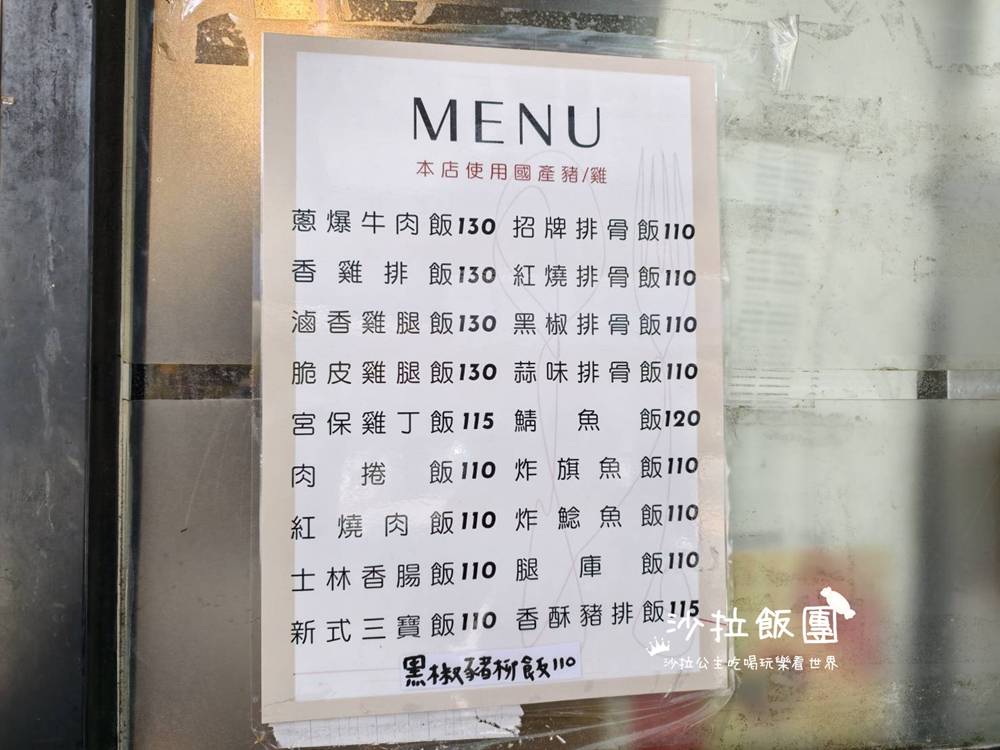 MENU
本店使用國產豬/雞
蔥爆牛肉飯130 招牌排骨飯110
香雞排飯130 紅燒排骨飯110
滷香雞腿飯130 黑椒排骨飯110
脆皮雞腿飯130 蒜味排骨飯110
宮保雞丁飯115 鯖魚飯120
肉捲飯110 炸旗魚飯110
紅燒肉飯110 炸鯰魚飯110
士林香腸飯110 腿庫飯110
新式三寶飯110 香酥豬排飯115
黑椒豬柳飯110
沙拉飯團
沙拉公主吃喝玩樂看世界